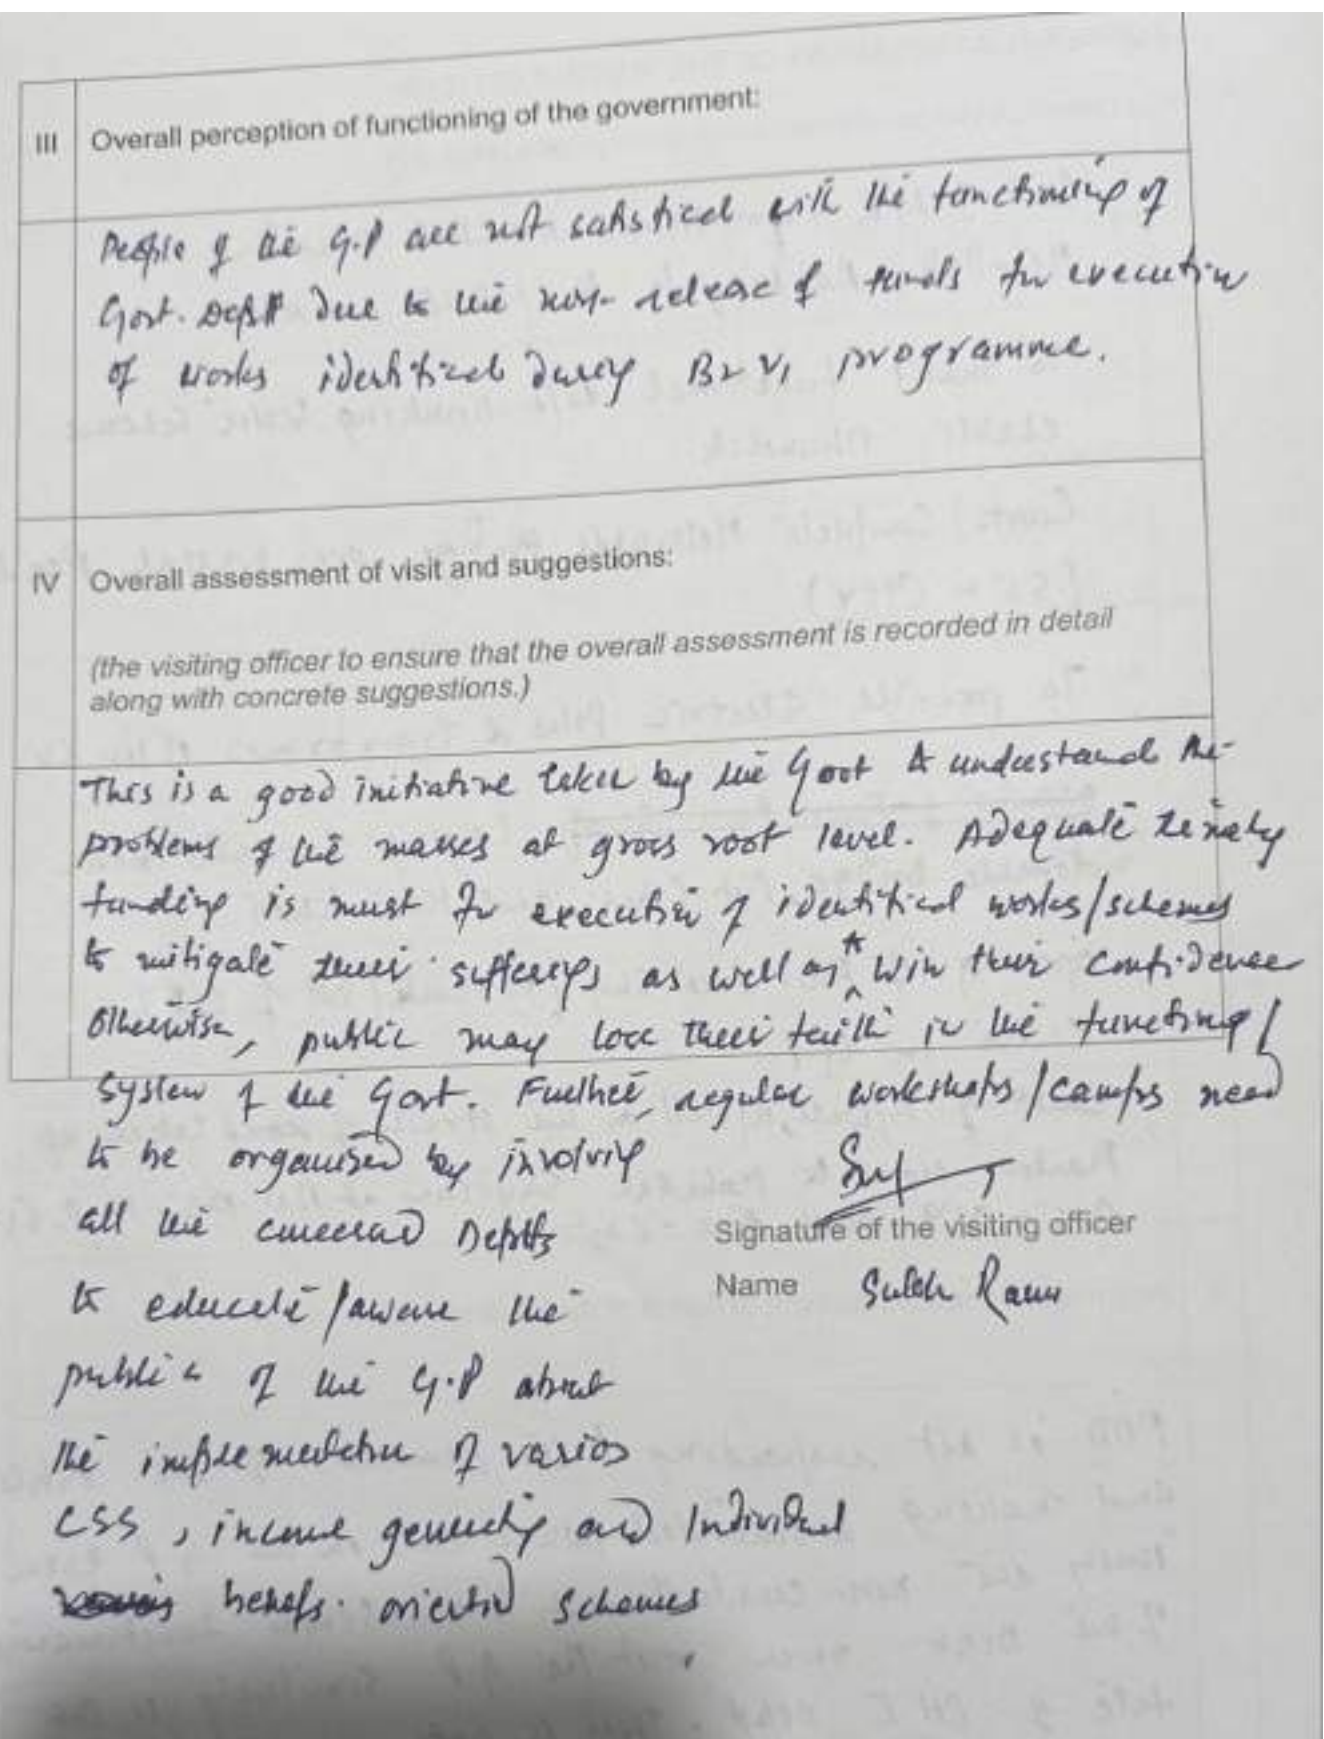 III Overall perception of functioning of the government:
People of the G.P are not satisfied with the functioning of
Govt. Deptt due to the non-release of funds for execution
of works identified during B2V1 programme.
IV Overall assessment of visit and suggestions:
(the visiting officer to ensure that the overall assessment is recorded in detail
along with concrete suggestions.)
This is a good initiative taken by the Govt to understand the
problems of the masses at gross root level. Adequate timely
funding is must for execution of identified works/schemes
to mitigate their sufferings as well as to win their confidence
otherwise, public may lose their faith in the functing/
system of the Govt. Further, regular workshops/camps need
to be organised by involving
all the concerned Deptts
to educate/aware the
public of the G.P about
the implementation of varios
CSS, income generating and Individual
benefs. oriented schemes
Signature of the visiting officer
Name Sulekh Ram